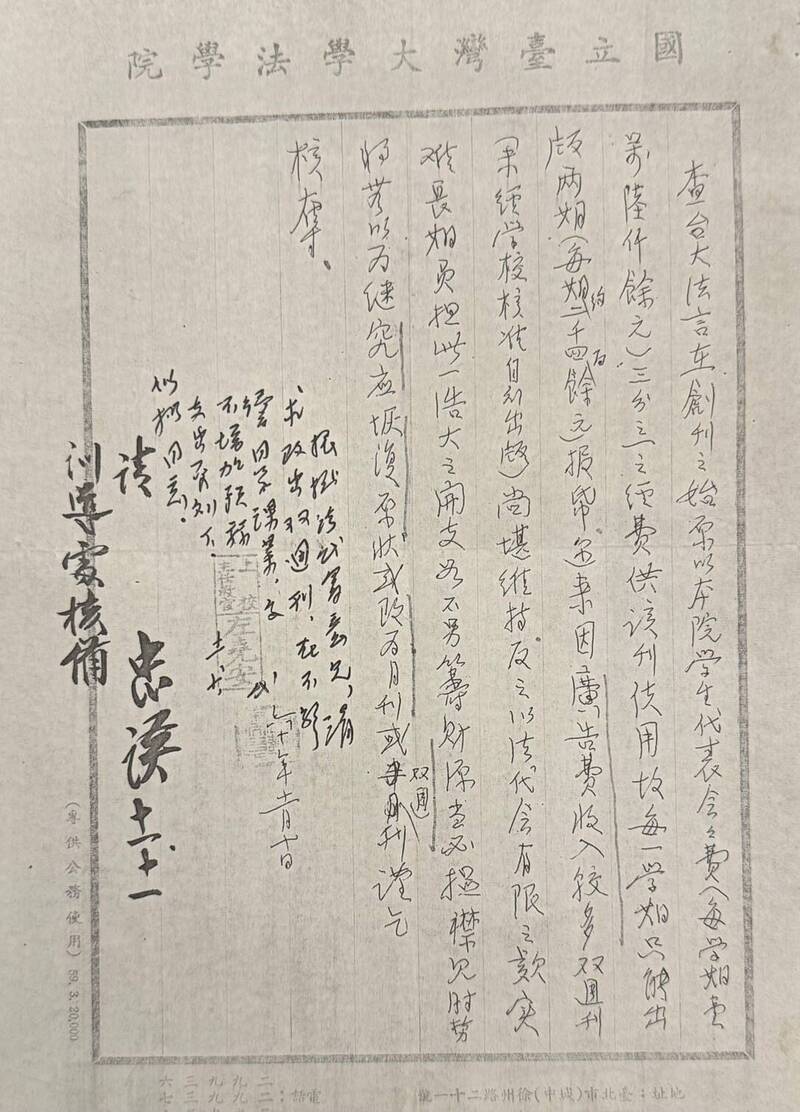 國立臺灣大學法學院
查台大法言在創刊之始原以本院学生代表会会費(每学期壹
萬陸仟餘元)三分之一之經費供該刊使用故每一学期只能出
版兩期(每期約二千四百餘元)报帋近来因廣告費收入較多双週刊
果經学校核准自動出版)尚堪維持反之以法代会有限之款实
难長期負担此一浩大之開支如不另籌財源当必捉襟見肘势
将难以为继究应恢復原狀或改为月刊或双週刊谨乞
核奪、
根據法代會意見,請
求改出双週刊,在不影
響同学課業,
不增加預務
支出原則下,
似拟同意.
上校
主任教官
左堯安
六十年十一月十日
請
訓導處核備
十一
(專供公務使用) 59. 3. 20,000
地址:臺北市(城中)徐州路二十一號
電話: